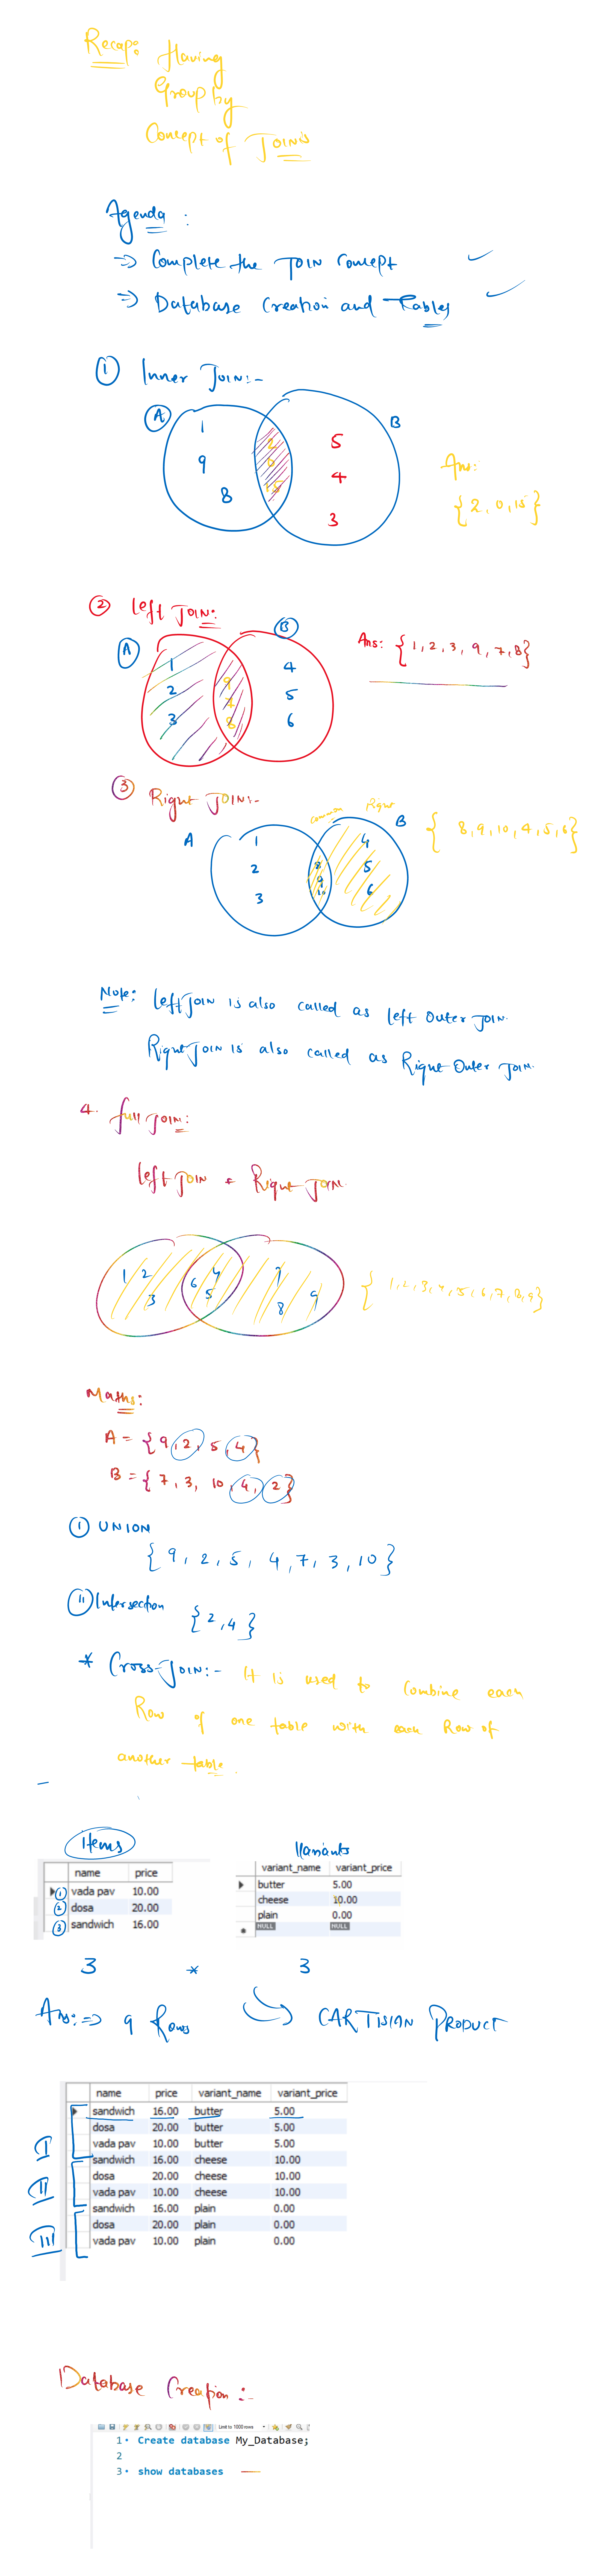 Recap: Having
Group by
Concept of JOINS
Agenda :
=> Complete the JOIN Concept
=> Database Creation and Tables
① Inner JOIN:-
A
B
1
9
8
2
0
15
5
4
3
Ans:
{2, 0, 15}
② Left JOIN:
A
B
1
2
3
9
7
8
4
5
6
Ans: {1, 2, 3, 9, 7, 8}
③ Right JOIN:-
Common Right
A
B
1
2
3
8
9
10
4
5
6
{ 8, 9, 10, 4, 5, 6}
Note: Left JOIN is also called as Left Outer JOIN.
Right JOIN is also called as Right Outer JOIN.
4. full JOIN:
Left JOIN + Right JOIN
1 2
3
6 4
5
7
8 9
{ 1, 2, 3, 4, 5, 6, 7, 8, 9}
Maths:
A = {9, 2, 5, 4}
B = {7, 3, 10, 4, 2}
① UNION
{ 9, 2, 5, 4, 7, 3, 10 }
⑪ Intersection {2, 4}
* Cross-JOIN:- It is used to combine each
Row of one table with each Row of
another table.
Items
name price
① vada pav 10.00
② dosa 20.00
③ sandwich 16.00
Variants
variant_name variant_price
butter 5.00
cheese 10.00
plain 0.00
NULL NULL
3 * 3
Ans:=> 9 Rows CARTISIAN PRODUCT
name price variant_name variant_price
sandwich 16.00 butter 5.00
dosa 20.00 butter 5.00
vada pav 10.00 butter 5.00
sandwich 16.00 cheese 10.00
dosa 20.00 cheese 10.00
vada pav 10.00 cheese 10.00
sandwich 16.00 plain 0.00
dosa 20.00 plain 0.00
vada pav 10.00 plain 0.00
I
II
III
Database Creation:-
Limit to 1000 rows
1 Create database My_Database;
2
3 show databases